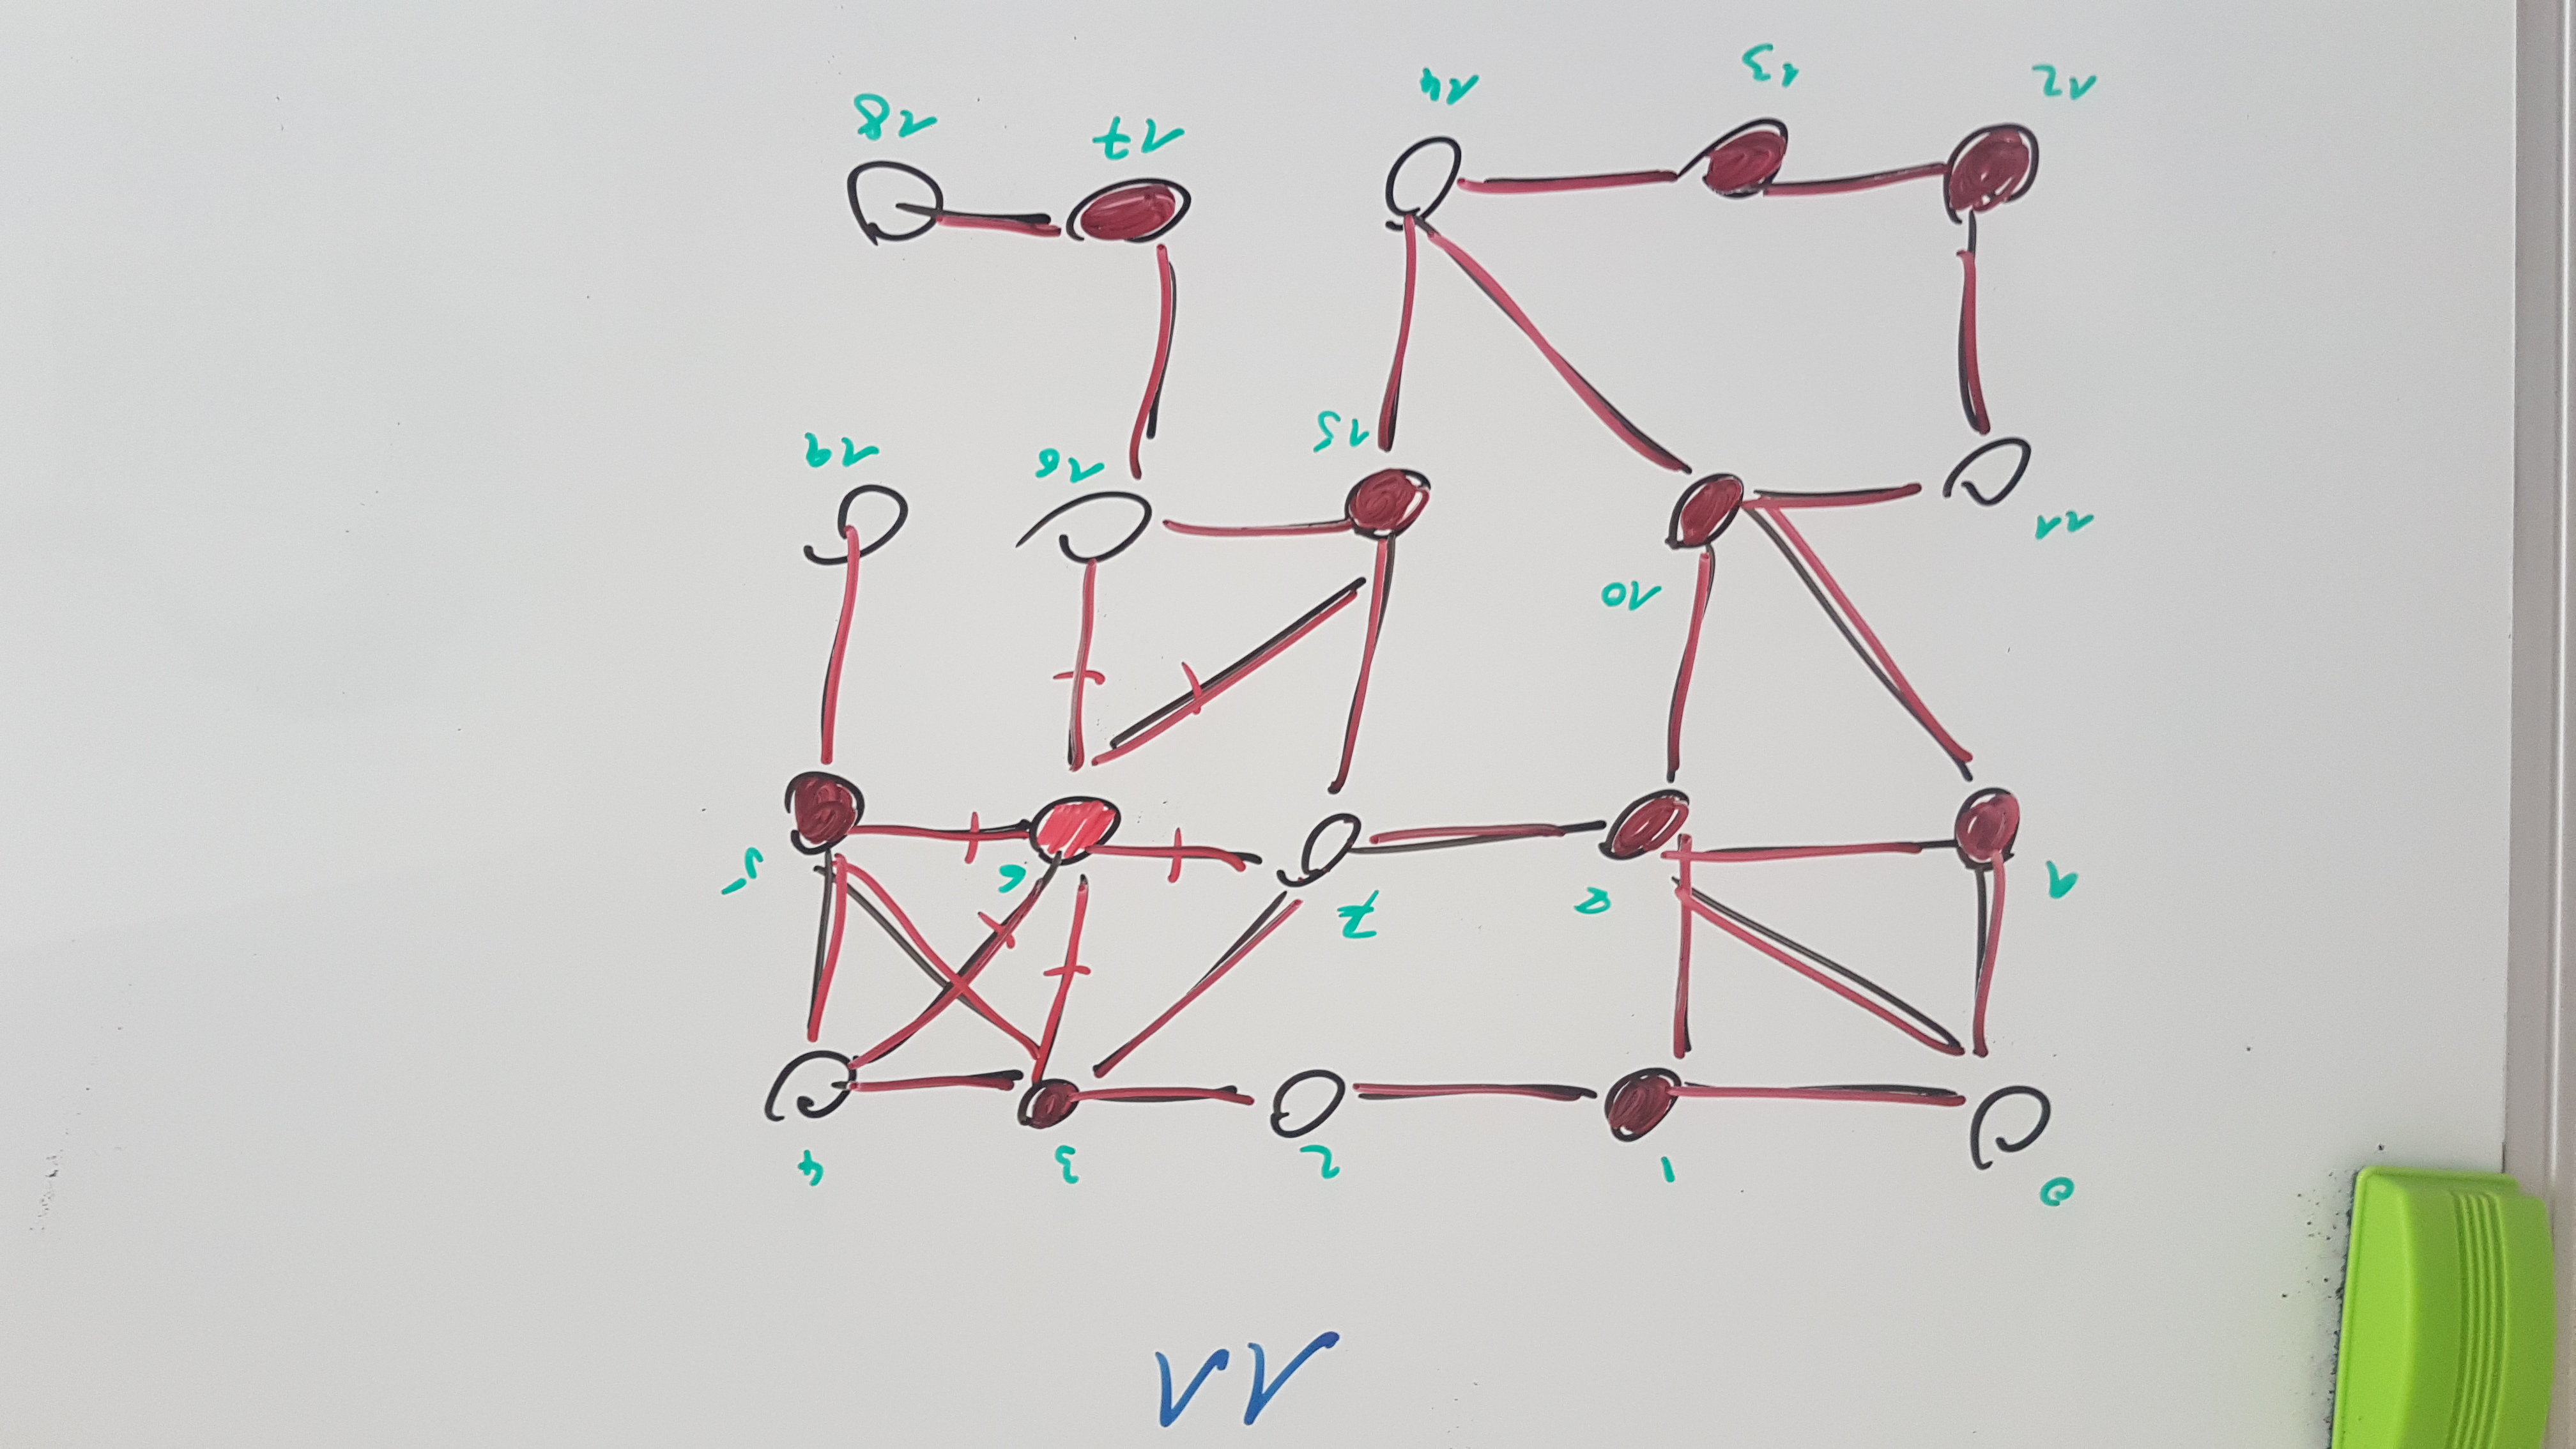 11
0 1 2 3 4
9 8 7 6 5
11 10 15 16 19
12 13 14 17 18